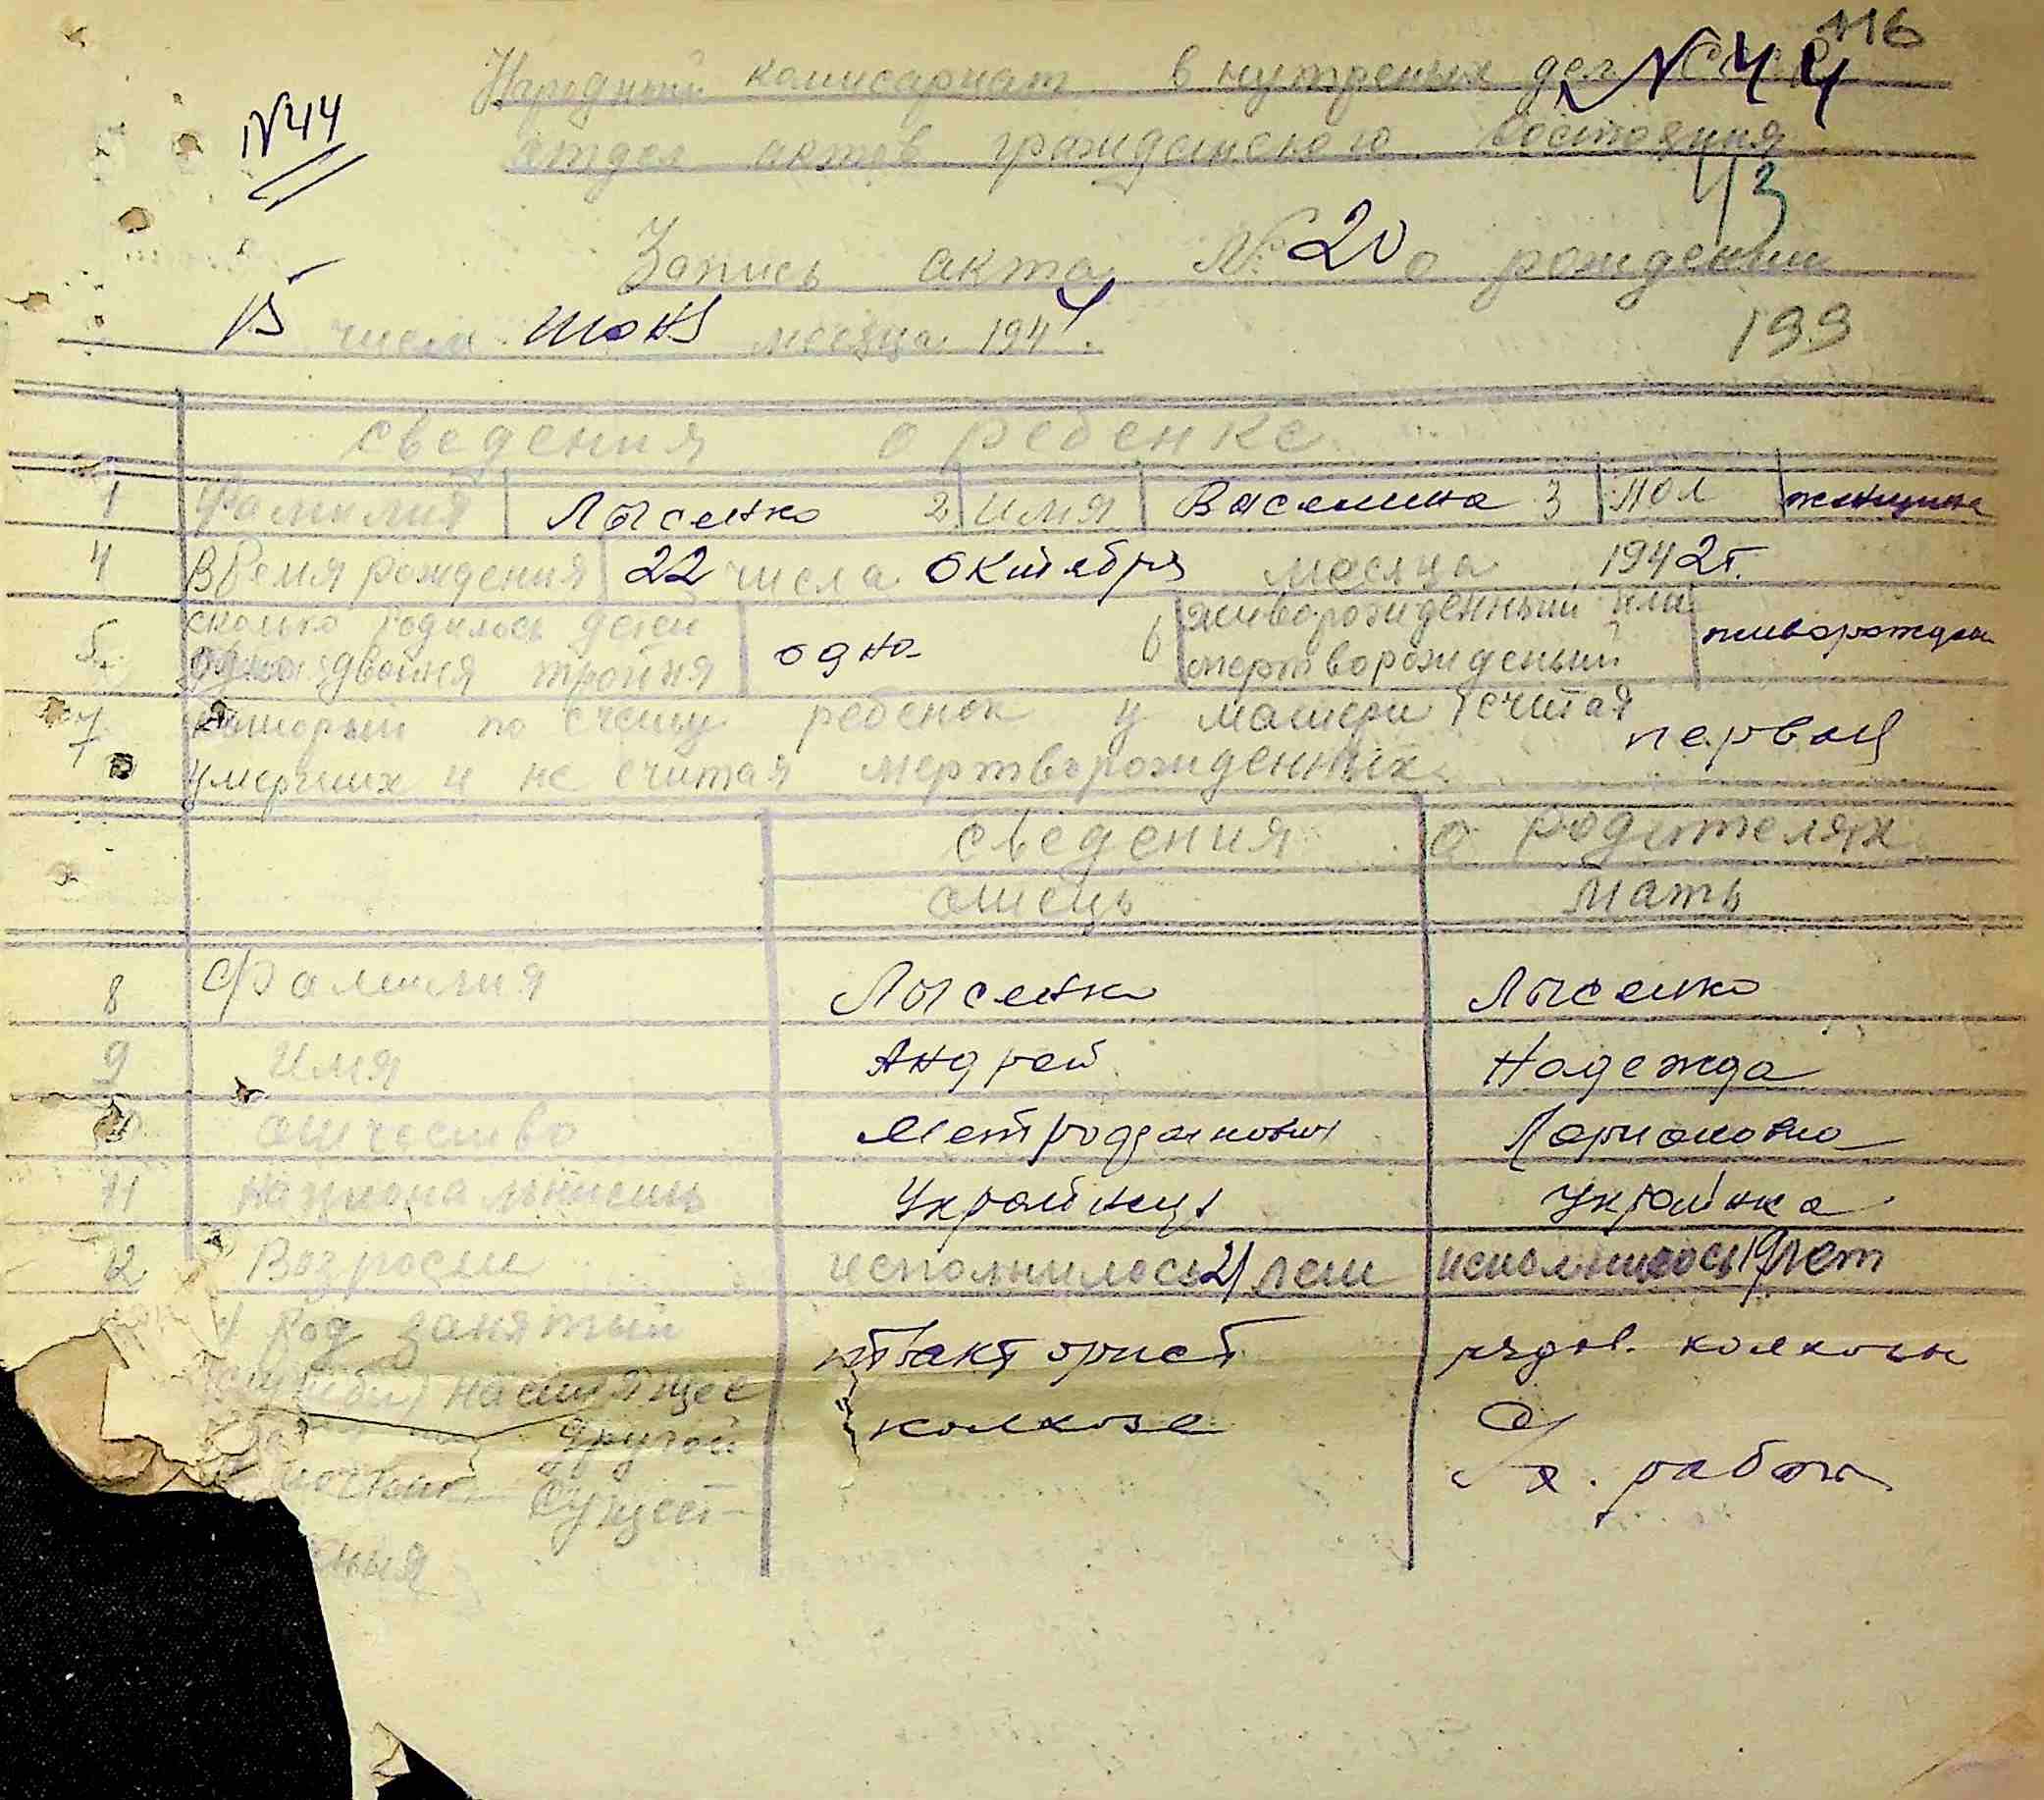 116
Народный комисариат внутреных дел
N 44
N44
отдел актов гражданского состояния
43
Запись акта № 20 о рождении
15 числа июня месяца 1944.
199
сведения о ребенке
1 Фамилия Лысенко 2 имя Василина 3 пол женщина
4 Время рождения 22 числа октября месяца 1942г.
5. сколько родилось детей одно двойня тройня одно 6 живорожденный или мертворожденый живорожден
7 который по счету ребенок у матери считая
умерших и не считая мертворожденных первый
сведения о родителях
отец мать
8 Фамилия Лысенко Лысенко
9 Имя Андрей Надежда
10 отчество Метрофанович Ларионовна
11 национальность Украинец Украинка
12 Возраст исполнилось 21 лет исполнилось 19 лет
Род занятый тракторист рядов. колхозн
(службы) настоящее колхоза
другой
С/х. работ
источник сущест-